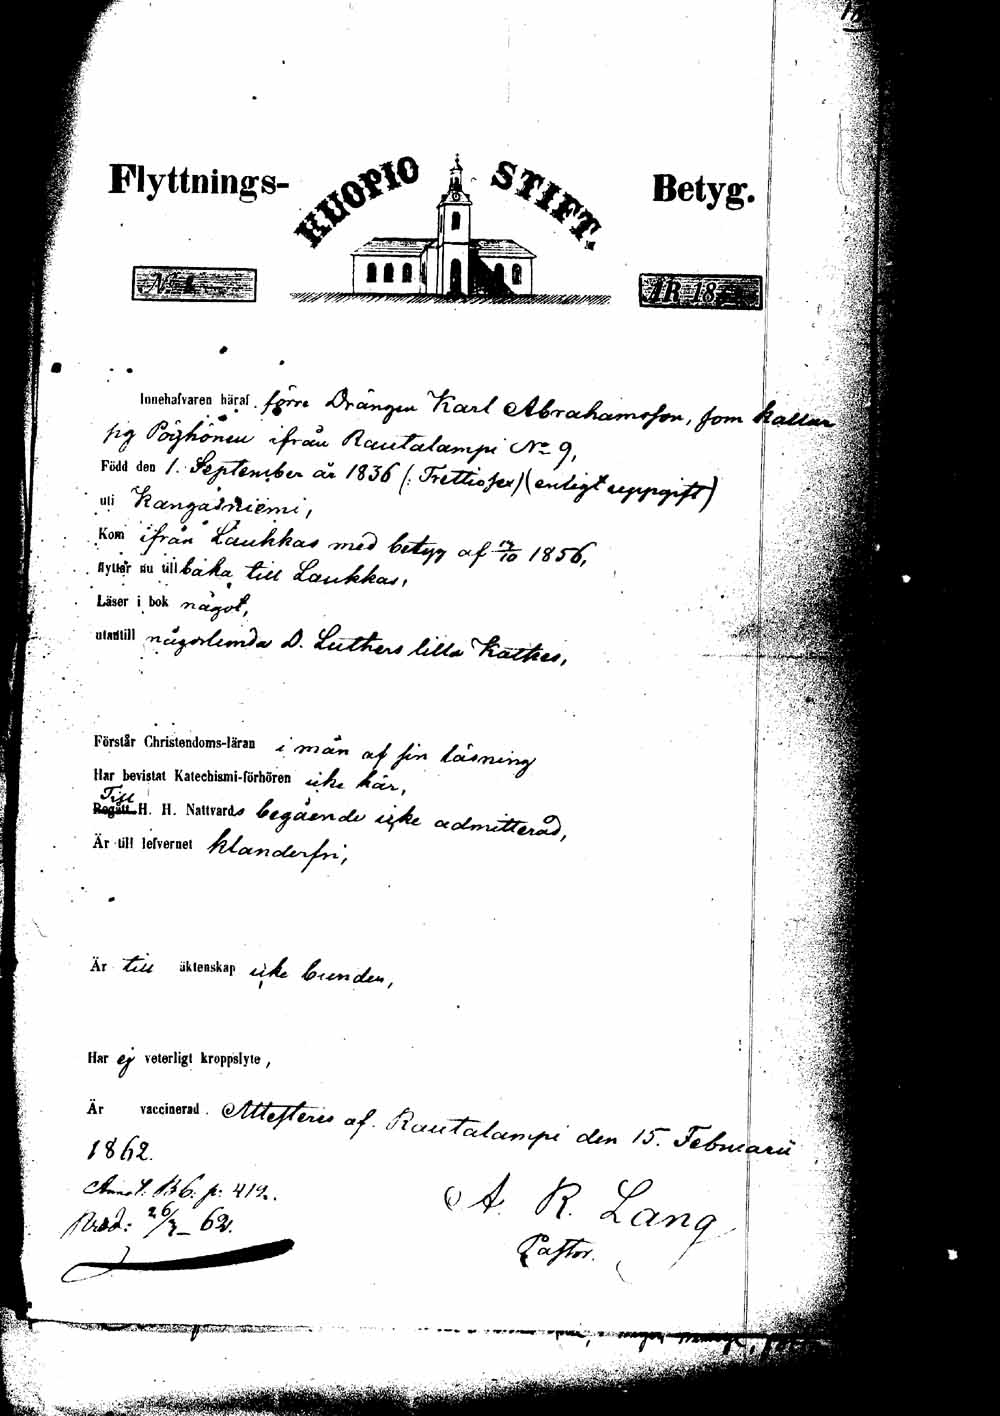 Flyttnings- KUOPIO STIFT. Betyg.
ÅR 18
Innehafvaren häraf förre Drängen Karl Abrahamsson, som kallar
sig Pöyhönen ifrån Rautalampi No 9,
Född den 1. September år 1836 (: Trettiosex) (enligt uppgift)
uti Kangasniemi,
Kom ifrån Laukkas med betyg af 17/10 1856,
flyttar nu tillbaka till Laukkas,
Läser i bok något,
utantill någorlunda D. Luthers lilla Kathes,
Förstår Christendoms-läran i mån af sin läsning
Har bevistat Katechismi-förhören icke här,
Till
Begått H. H. Nattvards begående icke admitterad,
Är till lefvernet klanderfri,
Är till äktenskap icke bunden,
Har ej veterligt kroppslyte,
Är vaccinerad. Attesteras af. Rautalampi den 15. Februarii
1862.
B6. p: 419.
A. R. Lang
62.
Pastor.